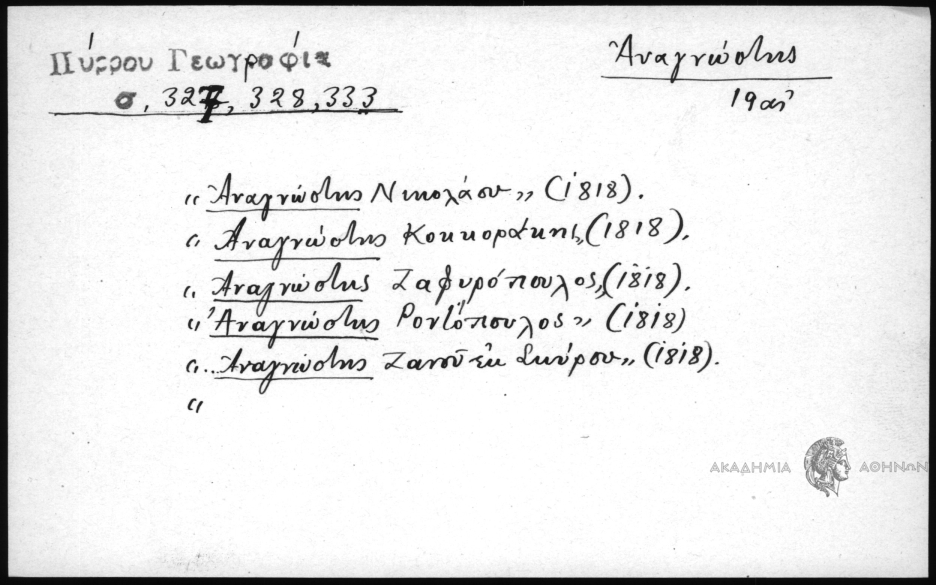 Πύρρου Γεωγραφία
σ. 327, 328, 333
Ἀναγνώστης
19 αἰ
“ Ἀναγνώστης Νικολάου” (1818).
“ Ἀναγνώστης Κοκκοράκης” (1818).
“ Ἀναγνώστης Ζαφυρόπουλος” (1818).
“ Ἀναγνώστης Ροντόπουλος” (1818)
“... Ἀναγνώστης Ζανοῦ ἐκ Σκύρου” (1818).
“
ΑΚΑΔΗΜΙΑ ΑΘΗΝΩΝ